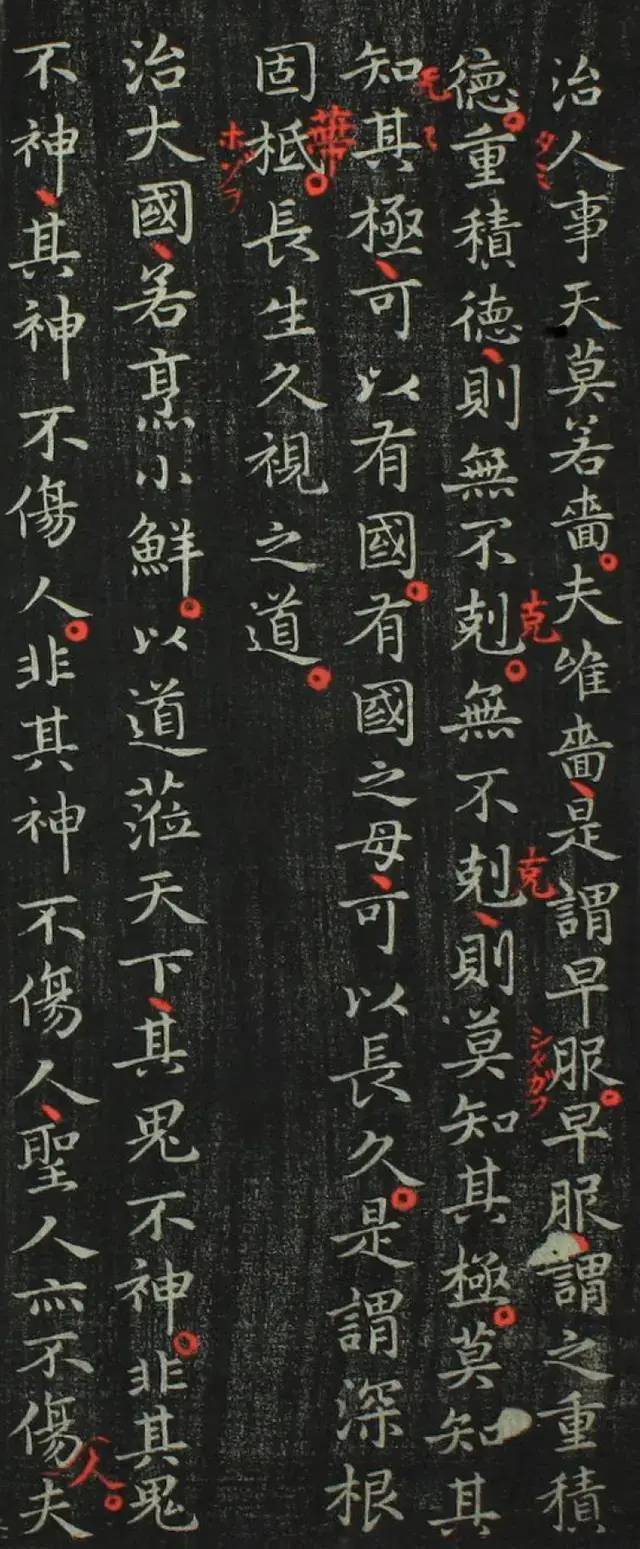 治人事天莫若嗇夫唯嗇是謂早服早服謂之重積
德重積德則無不剋無不剋則莫知其極莫知其
知其極可以有國有國之母可以長久是謂深根
固柢長生久視之道
治大國若烹小鮮以道蒞天下其鬼不神非其鬼
不神其神不傷人非其神不傷人聖人亦不傷夫
タミ
克
克
シヤガフ
ホゾヲ
人